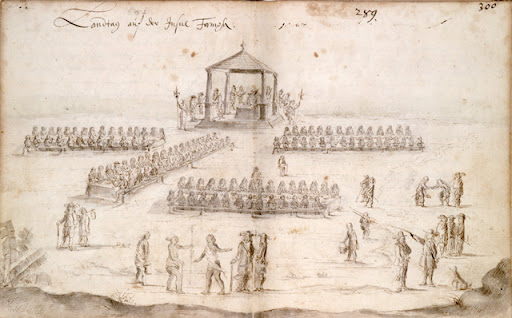 300
Landtag auf der Insul Formosa 289